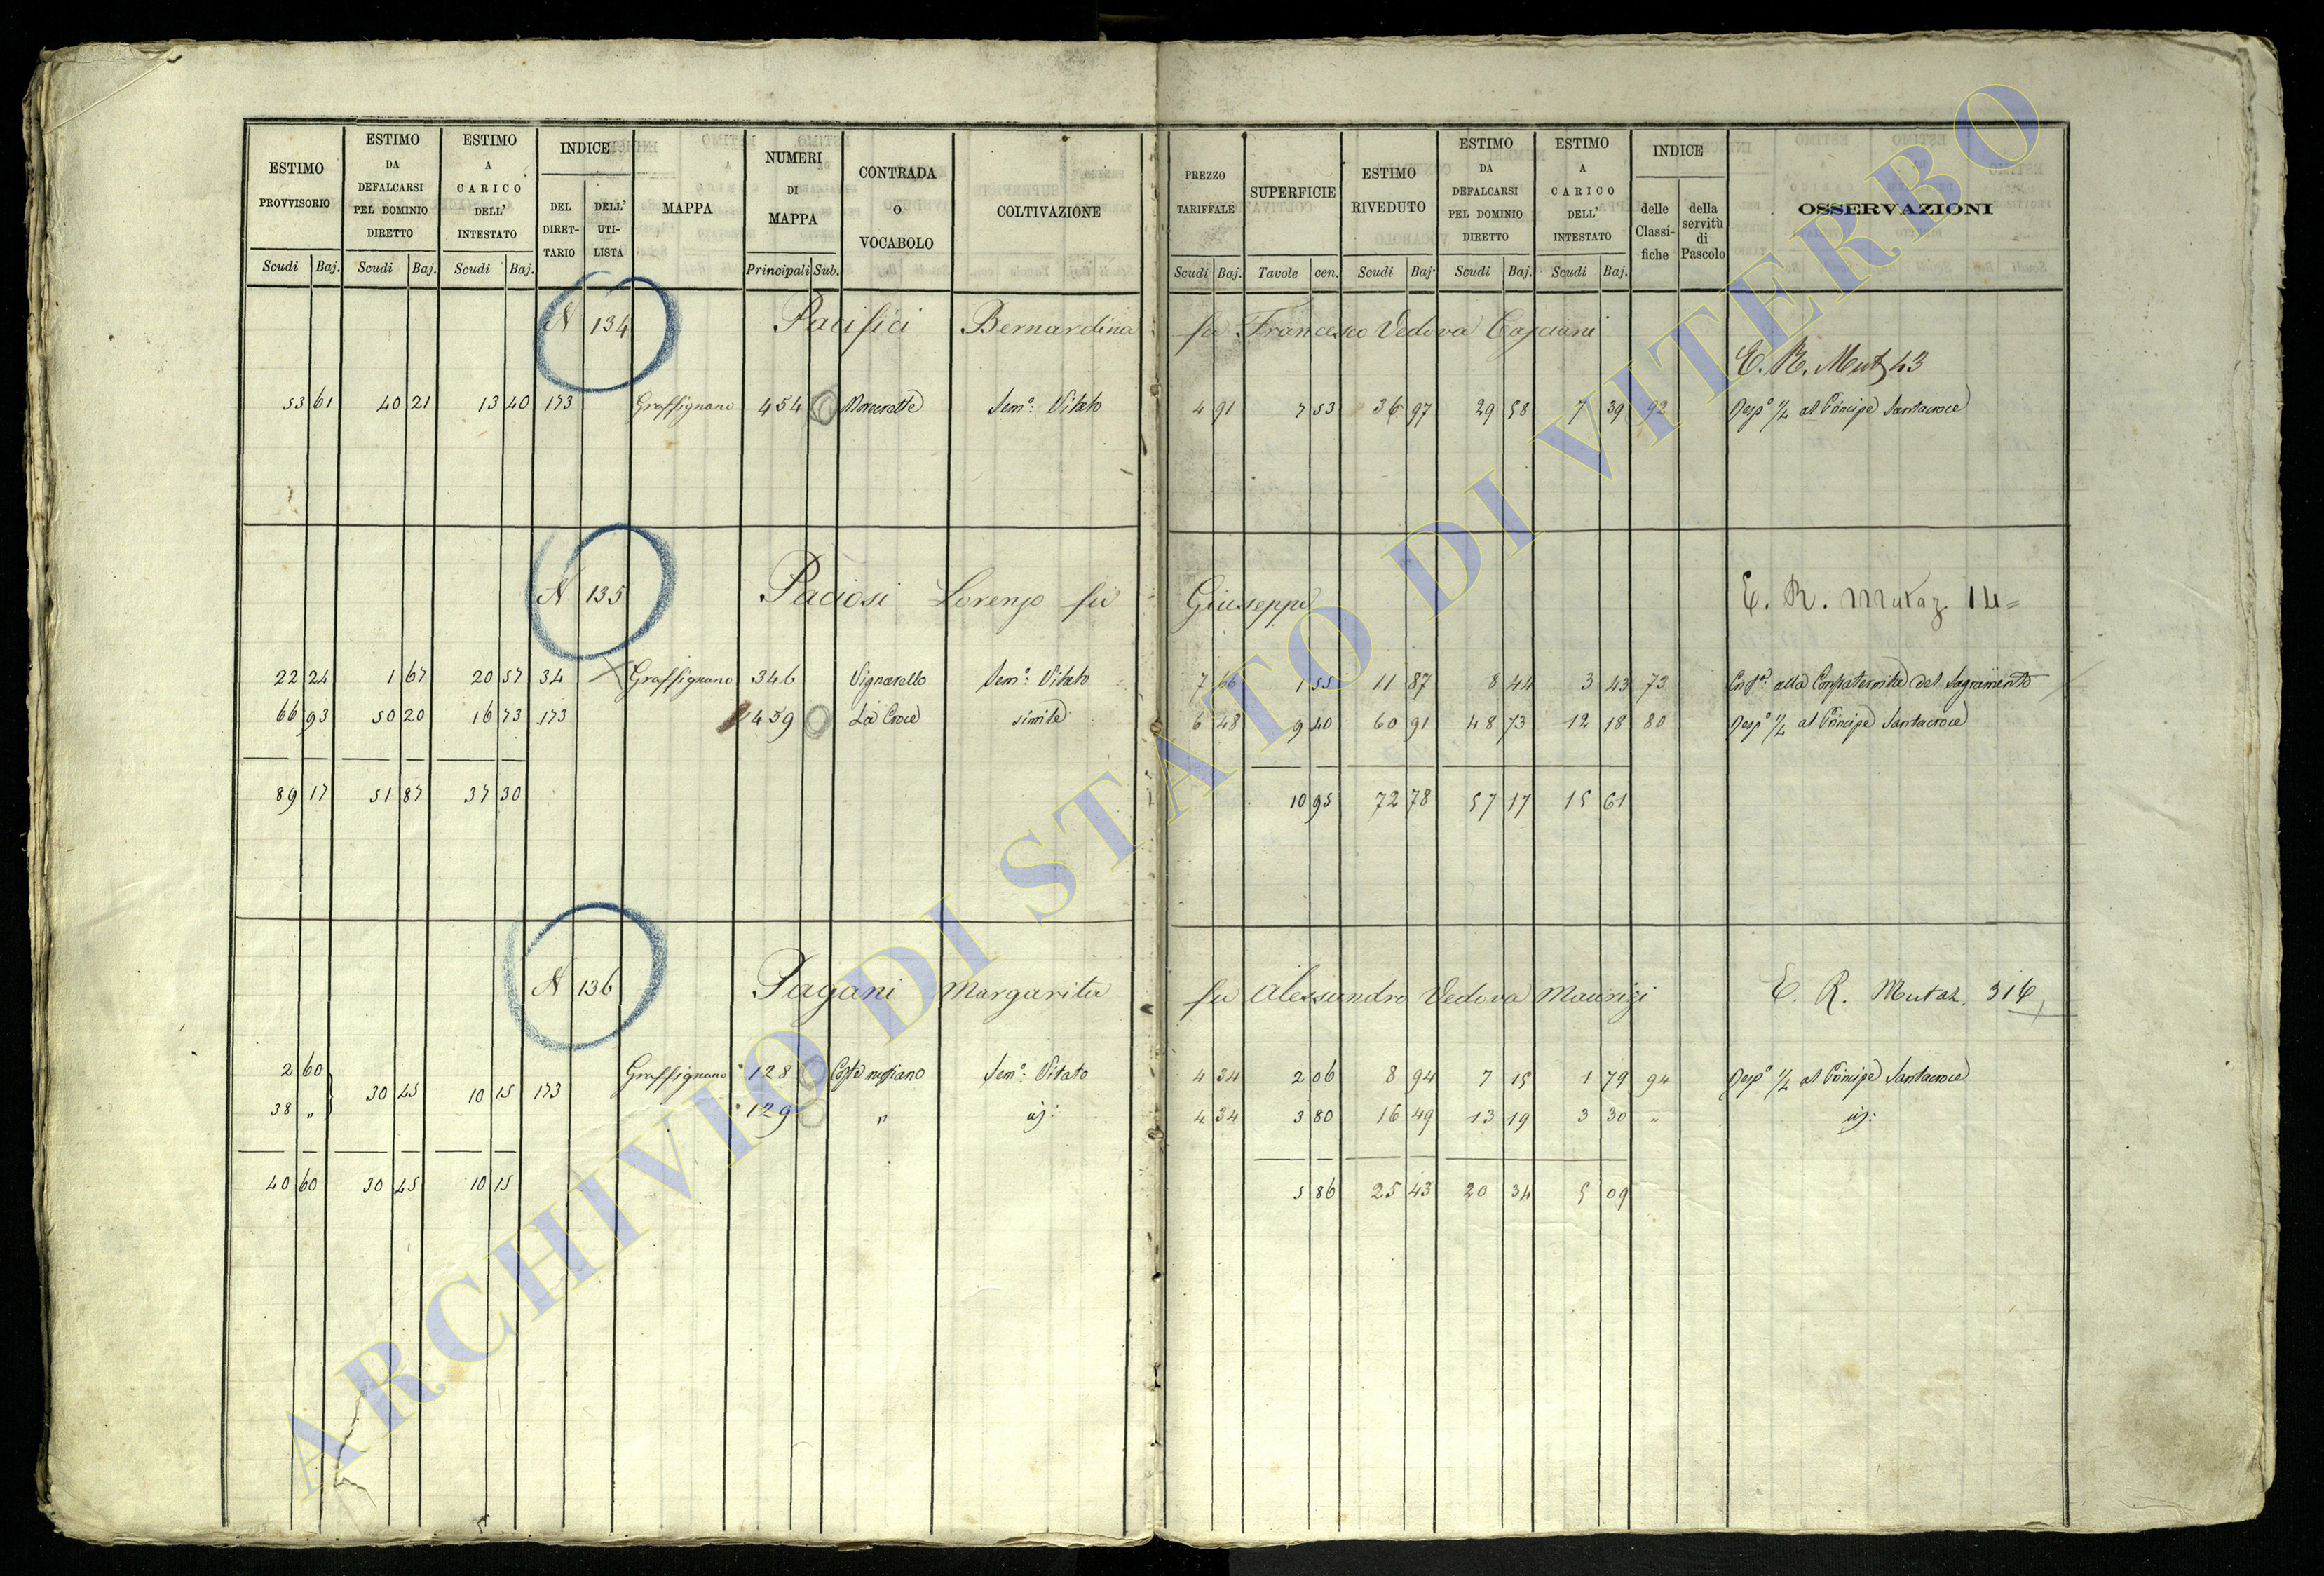 ESTIMO PROVVISORIO | ESTIMO DA DEFALCARSI PEL DOMINIO DIRETTO | ESTIMO A CARICO DELL' INTESTATO | INDICE DEL DIRET- TARIO | DELL' UTI- LISTA | MAPPA | NUMERI DI MAPPA | CONTRADA O VOCABOLO | COLTIVAZIONE | PREZZO TARIFFALE | SUPERFICIE | ESTIMO RIVEDUTO | ESTIMO DA DEFALCARSI PEL DOMINIO DIRETTO | ESTIMO A CARICO DELL' INTESTATO | INDICE delle Classi- fiche | della servitù di Pascolo | OSSERVAZIONI
Scudi Baj. | Scudi Baj. | Scudi Baj. | Principali Sub. | Scudi Baj. | Tavole cen. | Scudi Baj. | Scudi Baj. | Scudi Baj.
N 134 Pacifici Bernardina fu Francesco Vedova
E. R. Mut 43
53 61 | 40 21 | 13 40 | 173 | Graffignano | 454 | Semo: Vitato | 4 91 | 7 53 | 36 97 | 29 58 | 7 39 | 92 | Respo 1/4 al Principe Santacroce
N 135 Paciosi Lorenzo fu Giuseppe E. R. Mutaz 14=
22 24 | 1 67 | 20 57 | 34 | Graffignano | 346 | Vignarello | Semo: Vitato | 7 66 | 1 55 | 11 87 | 8 44 | 3 43 | 73 | alla Confraternita del Sagramento
66 93 | 50 20 | 16 73 | 173 | 459 | La Croce | simile | 6 48 | 9 40 | 60 91 | 48 73 | 12 18 | 80 | Respo 1/4 al Principe Santacroce
89 17 | 51 87 | 37 30 | 10 95 | 72 78 | 57 17 | 15 61
N 136 Pagani Margarita fu Alessandro Vedova Maurizi E. R. Mutaz. 316
2 60 | 30 45 | 10 15 | 173 | Graffignano | 128 | Semo: Vitato | 4 34 | 2 06 | 8 94 | 7 15 | 1 79 | 94 | Respo 1/4 al Principe Santacroce
38 " | 129 | " | 4 34 | 3 80 | 16 49 | 13 19 | 3 30 | "
40 60 | 30 45 | 10 15 | 5 86 | 25 43 | 20 34 | 5 09
ARCHIVIO DI STATO DI VITERBO